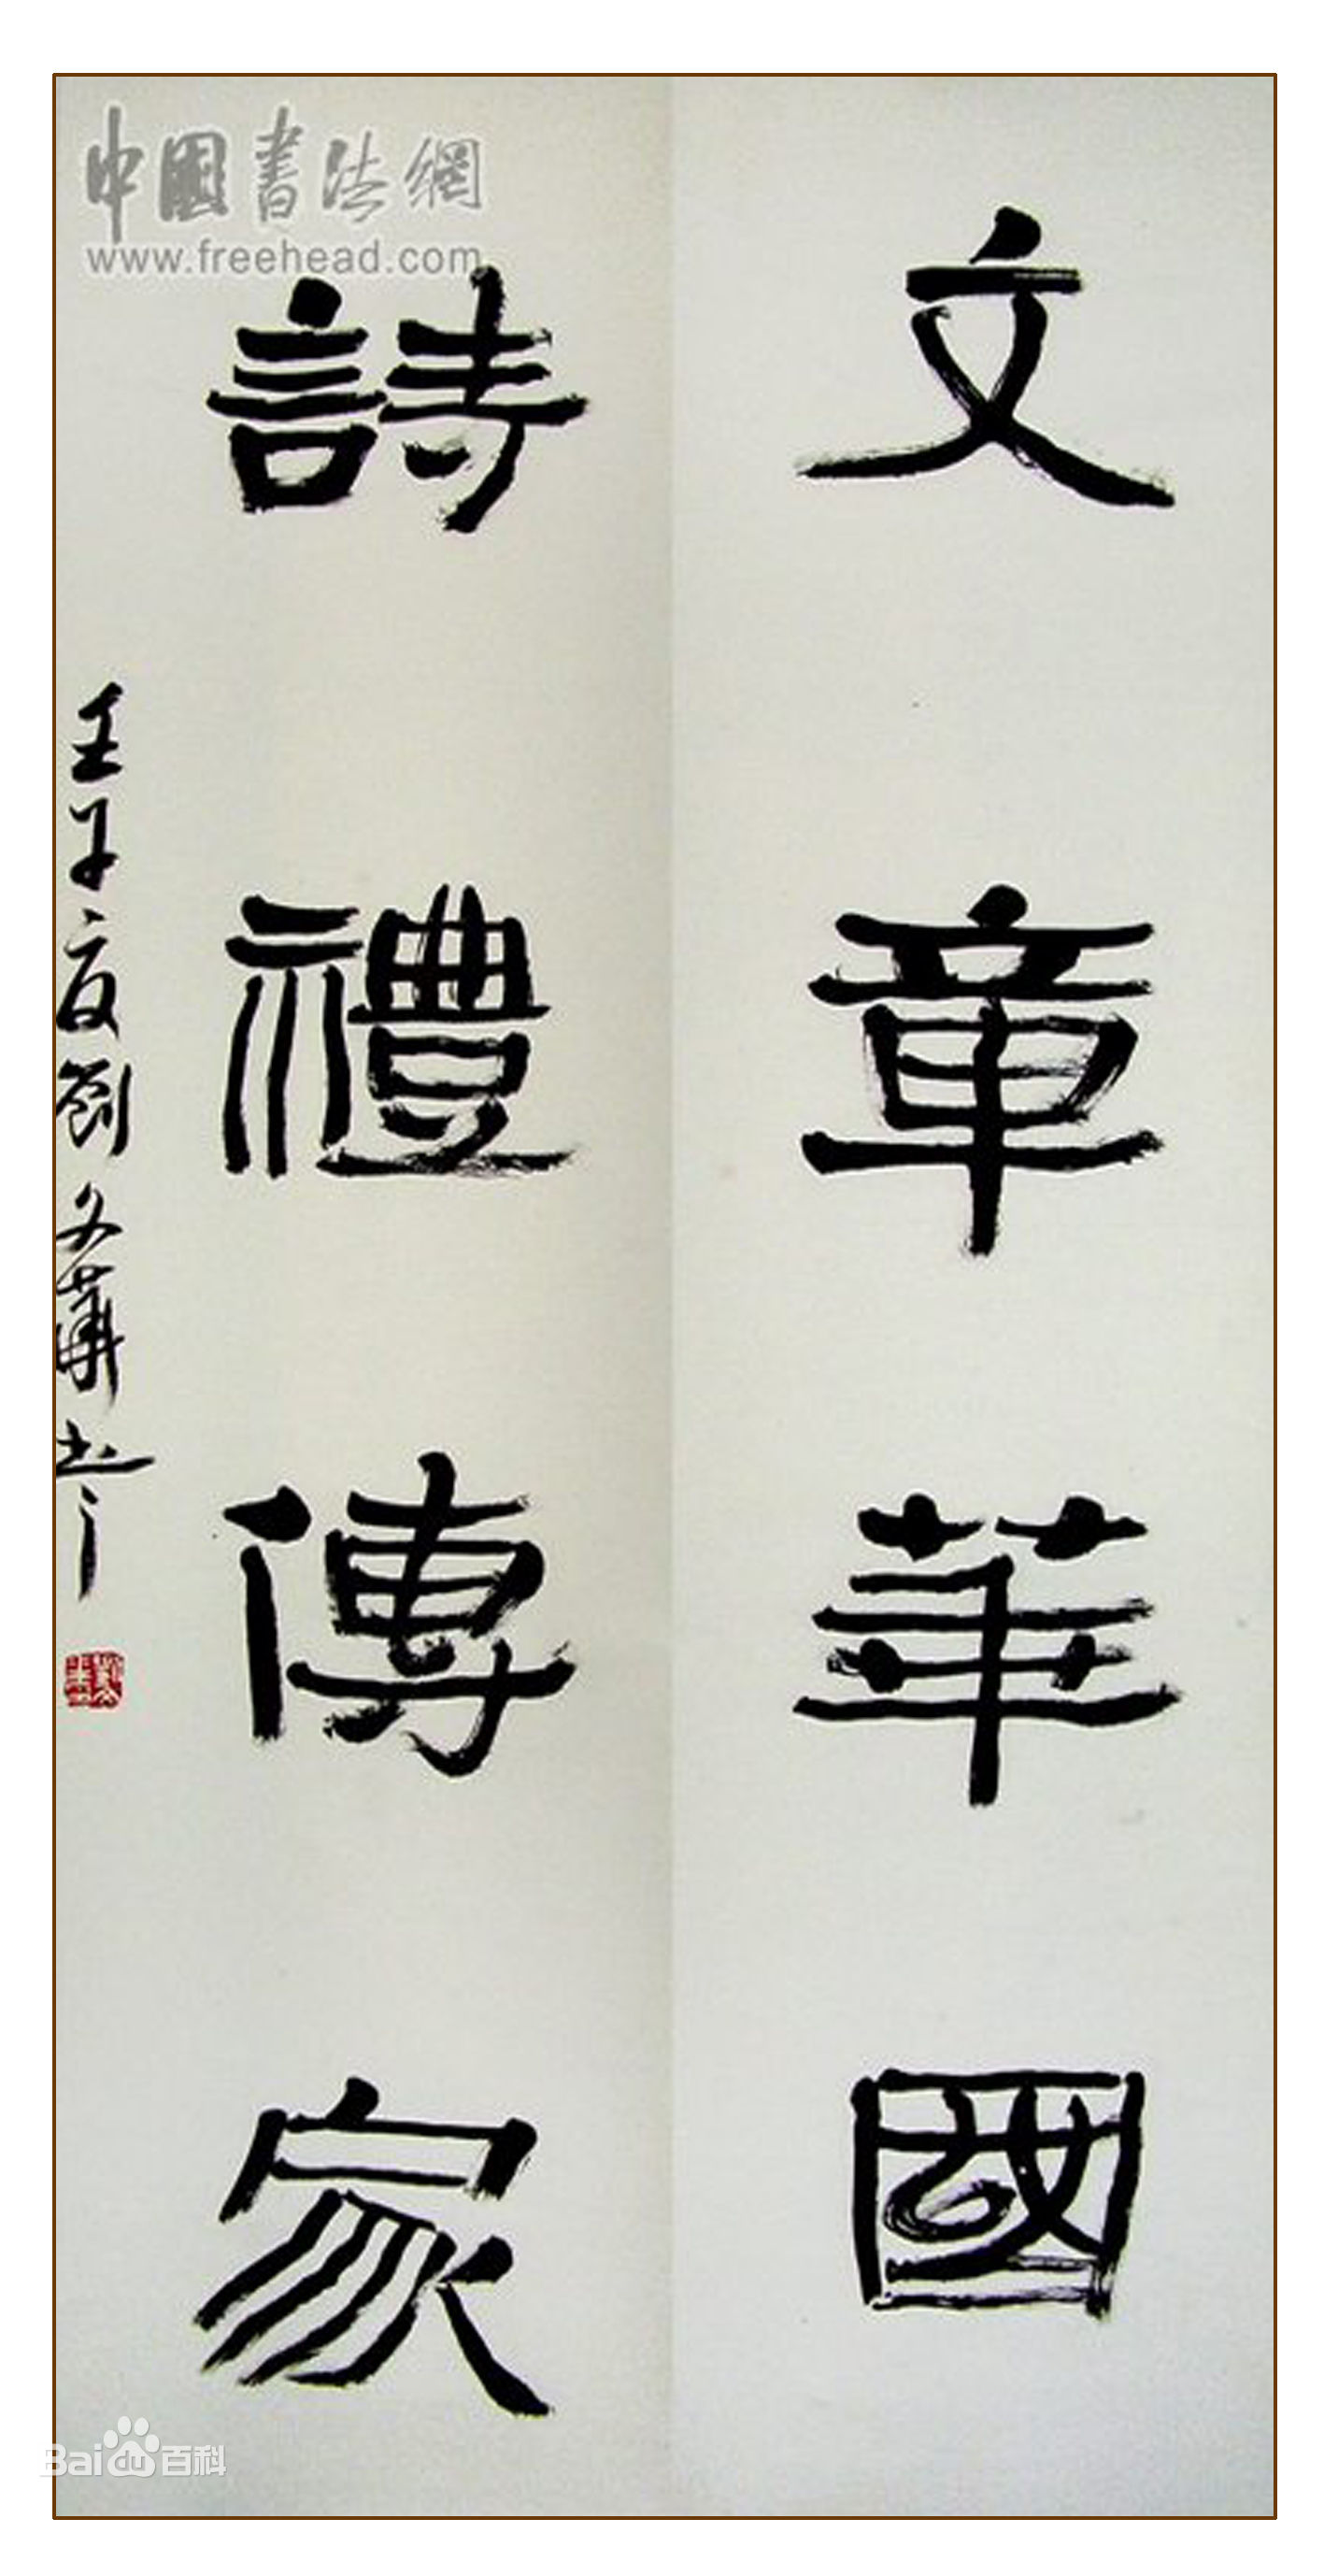 中國書法網
www.freehead.com
文章華國
詩禮傳家
壬子夏劉文華書
Bai du 百科